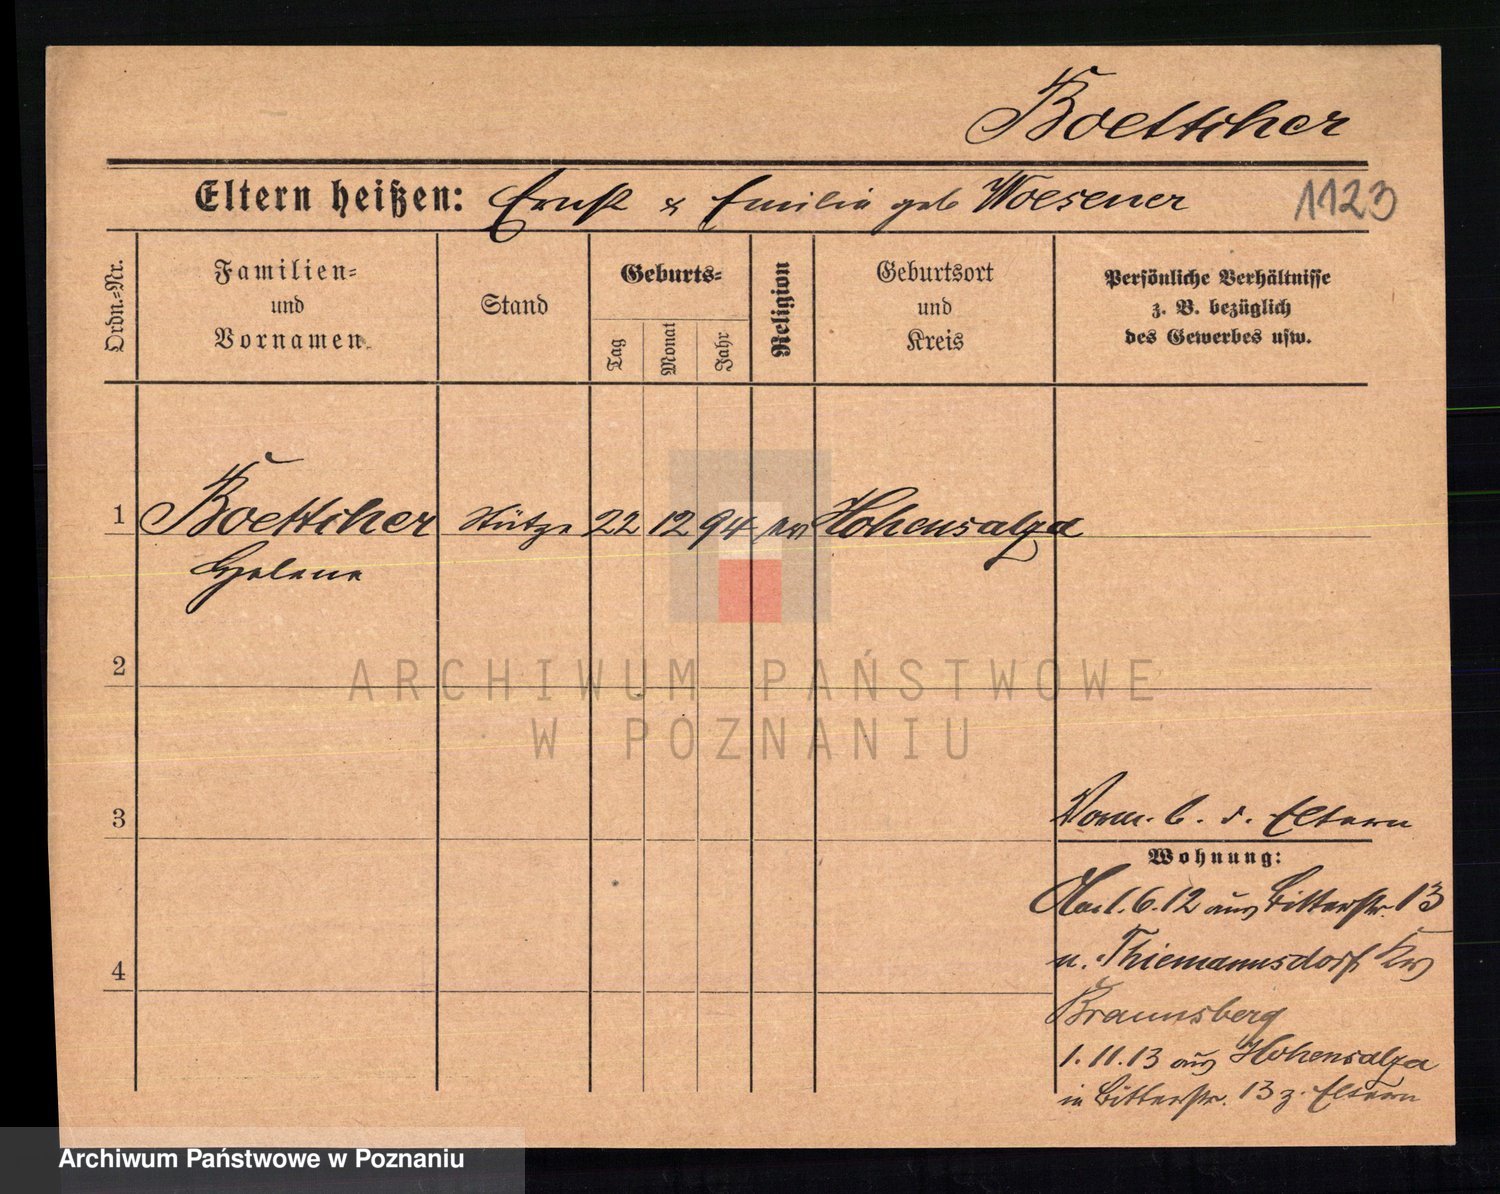 Boettcher
Eltern heißen: Ernst & Emilie geb Woesener 1123
Ordn.-Nr.
Familien-
und
Vornamen
Stand
Geburts-
Tag
Monat
Jahr
Religion
Geburtsort
und
Kreis
Persönliche Verhältnisse
z. B. bezüglich
des Gewerbes usw.
1 Boettcher Stütze 22 12 94 ev Hohensalza
Helene
2
ARCHIWUM PAŃSTWOWE
W POZNANIU
3
Vorm. b. d. Eltern
Wohnung:
1.6.12 aus Bitterstr. 13
n. Thiemannsdorf Krs
Braunsberg
1.11.13 aus Hohensalza
in Bitterstr. 13 z. Eltern
4
Archiwum Państwowe w Poznaniu